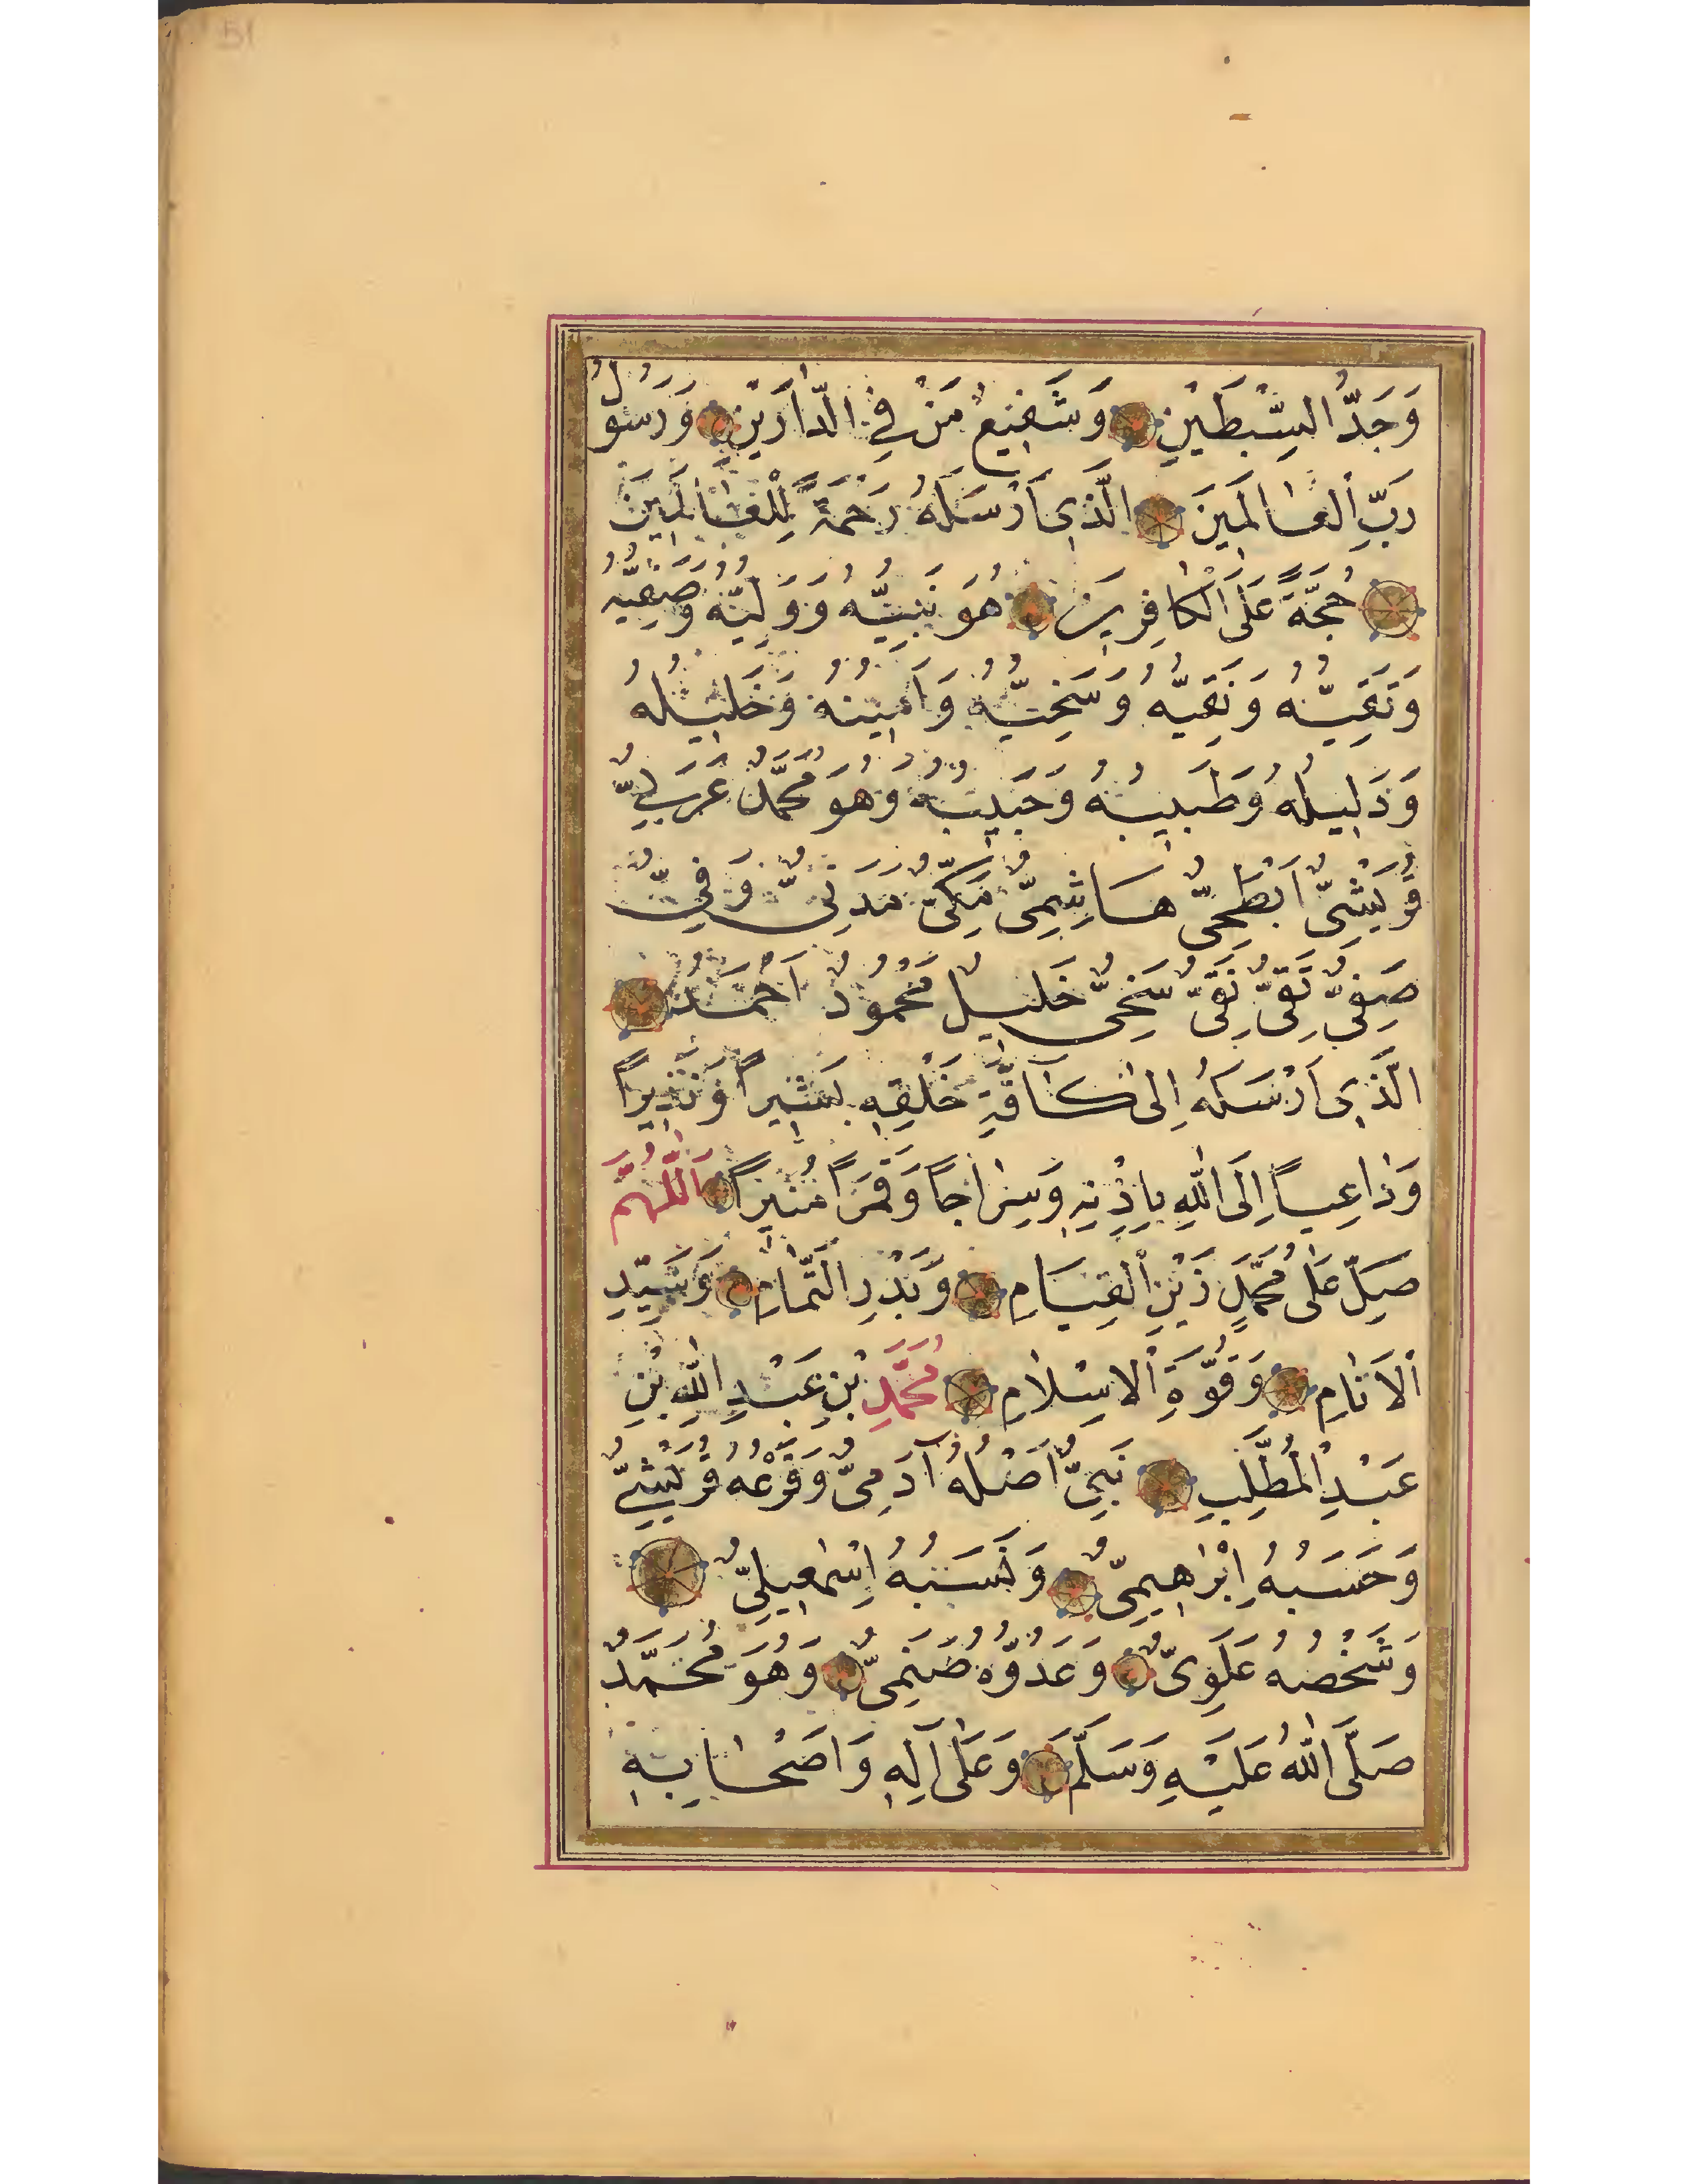 وَجَدُّ السِّبْطَيْنِ وَشَفِيعُ مَنْ فِي الدَّارَيْنِ وَرَسُولُ
رَبِّ الْعَالَمِينَ الَّذِي اَرْسَلَهُ رَحْمَةً لِلْعَالَمِينَ
حُجَّةً عَلَى الْكَافِرِينَ هُوَ نَبِيُّهُ وَوَلِيُّهُ وَصَفِيُّهُ
وَتَقِيُّهُ وَنَقِيُّهُ وَسَخِيُّهُ وَاَمِينُهُ وَخَلِيلُهُ
وَدَلِيلُهُ وَطَبِيبُهُ وَحَبِيبُهُ وَهُوَ مُحَمَّدٌ عَرَبِيٌّ
قُرَيْشِيٌّ اَبْطَحِيٌّ هَاشِمِيٌّ مَكِّيٌّ مَدَنِيٌّ وَفِيٌّ
صَفِيٌّ تَقِيٌّ نَقِيٌّ سَخِيٌّ خَلِيلٌ مَحْمُودٌ اَحْمَدُ
الَّذِي اَرْسَلَهُ اِلٰى كَآفَّةِ خَلْقِهِ بَشِيرًا وَنَذِيرًا
وَدَاعِيًا اِلَى اللّٰهِ بِاِذْنِهِ وَسِرَاجًا وَقَمَرًا مُنِيرًا اَللّٰهُمَّ
صَلِّ عَلٰى مُحَمَّدٍ زَيْنِ الْقِيَامِ وَبَدْرِ التَّمَامِ وَسَيِّدِ
الْاَنَامِ وَقُوَّةِ الْاِسْلَامِ مُحَمَّدِ بْنِ عَبْدِ اللّٰهِ بْنِ
عَبْدِ الْمُطَّلِبِ نَبِيٌّ اَصْلُهُ آدَمِيٌّ وَفَرْعُهُ قُرَيْشِيٌّ
وَحَسَبُهُ اِبْرَاهِيمِيٌّ وَنَسَبُهُ اِسْمٰعِيلِيٌّ
وَشَخْصُهُ عَلَوِيٌّ وَعَدُوُّهُ صَنَمِيٌّ وَهُوَ مُحَمَّدٌ
صَلَّى اللّٰهُ عَلَيْهِ وَسَلَّمَ وَعَلٰى آلِهِ وَاَصْحَابِهِ